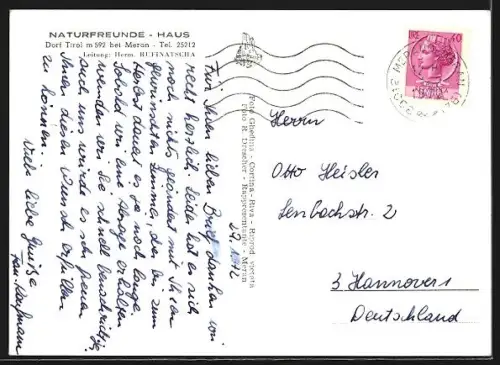 NATURFREUNDE - HAUS
Dorf Tirol m 592 bei Meran - Tel. 25212
Leitung: Herm. RUFINATSCHA
29. 12
Für Ihren lieben Brief danken wir
recht herzlich. Leider hat es sich
noch nichts geändert mit Ihren
gewünschten Zimmer, da bis zum
Herbst dauert es ja noch lange.
Sobald wir eine Absage erhalten
werden wir Sie schnell benachrichtigen
auch uns würde es sehr freuen
Ihnen diesen Wunsch erfüllen
zu können.
Viele liebe Grüße
Fam. Kaufmann
Foto Ghedina - Cortina - Riva - Riprod. vietata
Foto R. Drescher - Rappresentante - Meran
LIRE 40
39012
Herrn
Otto Heisler
Lenbachstr. 2
3 Hannover 1
Deutschland